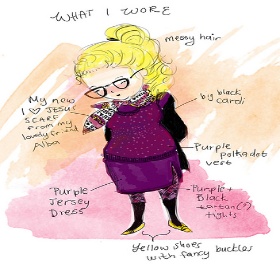 WHAT I WORE
messy hair
My new
I ♡ Jesus
SCARF
from my
lovely friend
Alba
big black
cardi
Purple
polkadot
vest
Purple
Jersey
Dress
Purple +
Black
tartan(?)
tights
Yellow shoes
with fancy buckles